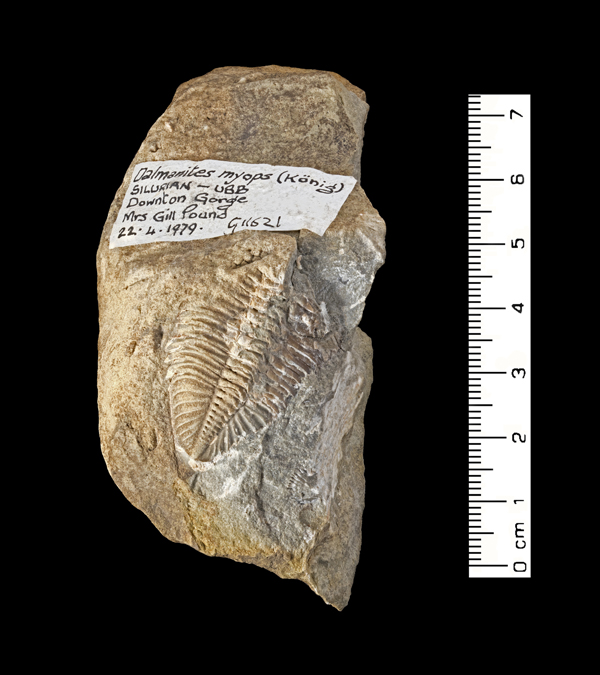 Dalmanites myops (König)
SILURIAN - UBB
Downton Gorge
Mrs Gill Pound
22.4.1979. G11621
7
6
5
4
3
2
1
0 cm